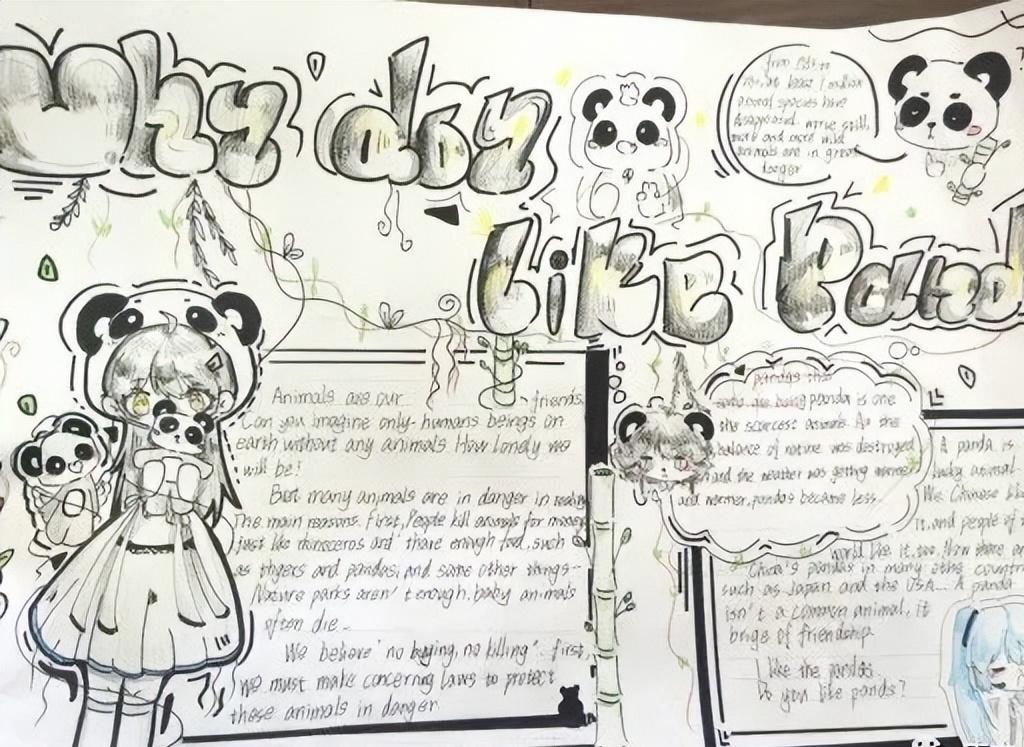 Why doy
like Pand
Animals are our friends.
Can you imagine only humans beings on
earth without any animals How lonely we
will be!
But many animals are in danger in
The main reasons. First, People kill animals for money
just like rhinoceros and there enough food, such
as thgers and pandas, and some other things
Nature parks aren't enough. baby animals
often die.
We behave "no buying, no killing". first,
we must make concerning laws to protect
these animals in danger
at least 1 million
animal species have
disappeared. worse still,
more and more wild
animals are in great
danger
pandas the
panda is one
the scarcest animals. As the
balance of nature was destroyed
and the weather was getting warmer
and warmer, pandas became less.
A panda is
lucky animal
We Chinese like
it, and people of
world like it, too. Now there are
China's pandas in many othe countr
such as Japan and the USA... A panda
isn't a common animal, it
brige of friendship
I like the pandas.
Do you like pands?